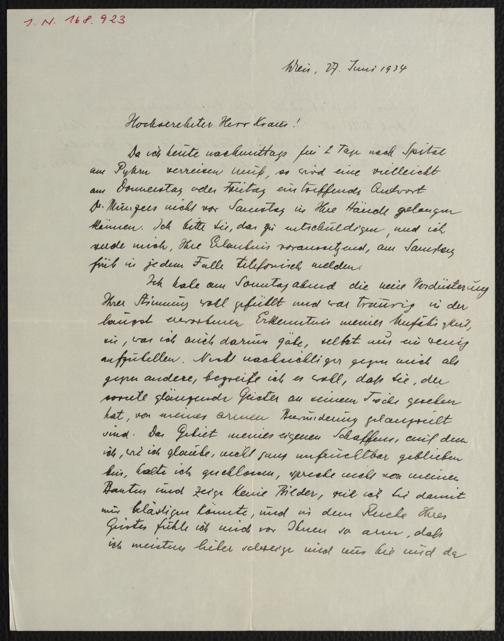 I. N. 168.923
Wien, 27. Juni 1934
Hochverehrter Herr Kraus!
Da ich heute nachmittags für 2 Tage nach Spital
am Pyhrn verreisen muß, so wird eine vielleicht
am Donnerstag oder Freitag eintreffende Antwort
Dr. Müngers nicht vor Samstag in Ihre Hände gelangen
können. Ich bitte Sie, das zu entschuldigen, und ich
werde mich, Ihre Erlaubnis voraussetzend, am Samstag
früh in jedem Falle telefonisch melden.
Ich habe am Sonntag abend die neue Verdüsterung
Ihrer Stimmung wohl gefühlt und war traurig in der
längst erworbenen Erkenntnis meiner Unfähigkeit,
sie, was ich auch darum gäbe, selbst nur ein wenig
aufzuhellen. Nicht nachsichtiger gegen mich als
gegen andere, begreife ich es wohl, daß Sie, der
soviele glänzende Geister an seinem Tisch gesehen
hat, von meiner armen Bewunderung gelangweilt
sind. Das Gebiet meines eigenen Schaffens, auf dem
ich, wie ich glaube, nicht ganz unfruchtbar geblieben
bin, halte ich geschlossen, spreche nicht von meinen
Bauten und zeige keine Bilder, weil ich Sie damit
nur belästigen könnte, und in dem Reiche Ihres
Geistes fühle ich mich vor Ihnen so arm, daß
ich meistens lieber schweige und nur hie und da